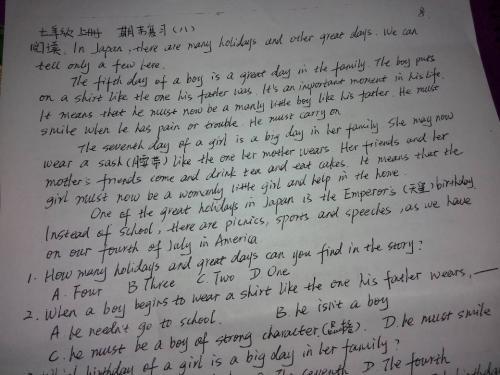 七年级上册 期末复习(八)
8
阅读. In Japan, there are many holidays and other great days. We can
tell only a few here.
The fifth day of a boy is a great day in the family. The boy puts
on a shirt like the one his father has. It's an important moment in his life.
It means that he must now be a manly little boy like his father. He must
smile when he has pain or trouble. He must carry on.
The seventh day of a girl is a big day in her family. She may now
wear a sash(腰带) like the one her mother wears. Her friends and her
mother's friends come and drink tea and eat cakes. It means that the
girl must now be a womanly little girl and help in the home.
One of the great holidays in Japan is the Emperor's (天皇) birthday.
Instead of school, there are picnics, sports and speeches, as we have
on our fourth of July in America
1. How many holidays and great days can you find in the story?
A. Four B Three C. Two D One
2. When a boy begins to wear a shirt like the one his father wears, __
A he needn't go to school. B. he isn't a boy
C. he must be a boy of strong character(品格). D. he must smile
birthday of a girl is a big day in her family?
The seventh D The fourth
birthday